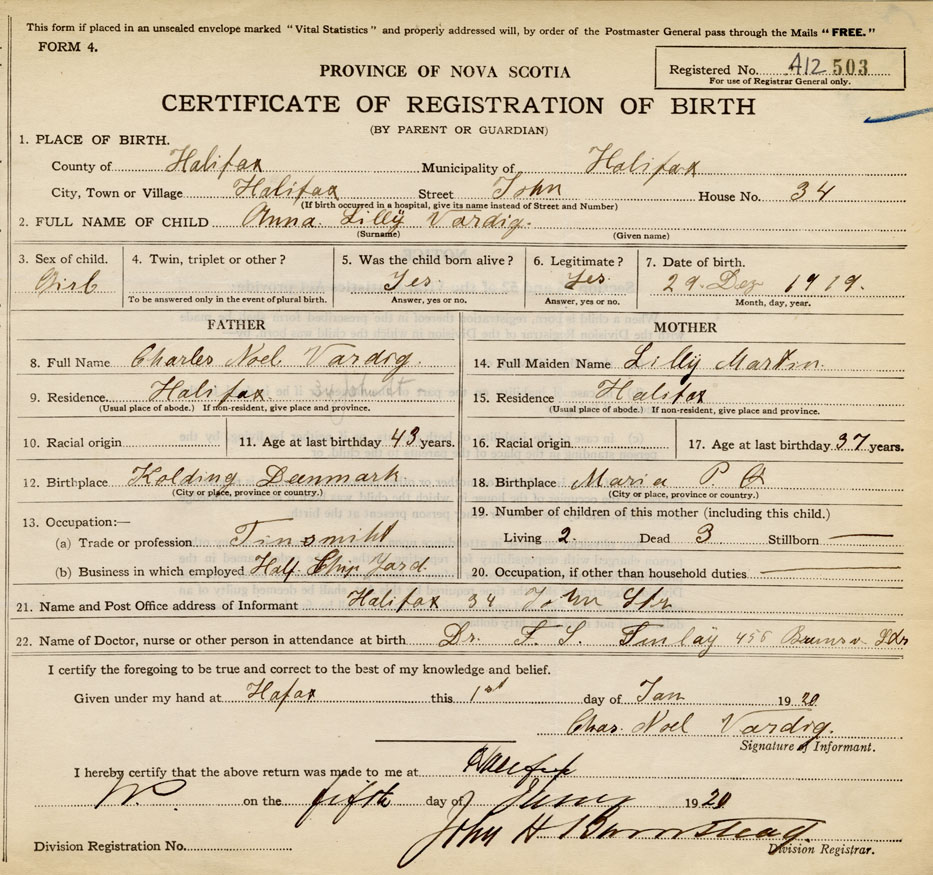 This form if placed in an unsealed envelope marked "Vital Statistics" and properly addressed will, by order of the Postmaster General pass through the Mails "FREE."
FORM 4.
Registered No. A12 503
For use of Registrar General only.
PROVINCE OF NOVA SCOTIA
CERTIFICATE OF REGISTRATION OF BIRTH
(BY PARENT OR GUARDIAN)
1. PLACE OF BIRTH.
County of Halifax Municipality of Halifax
City, Town or Village Halifax Street John House No. 34
(If birth occurred in a hospital, give its name instead of Street and Number)
2. FULL NAME OF CHILD Anna Lilly Vardig.
(Surname) (Given name)
3. Sex of child. 4. Twin, triplet or other? 5. Was the child born alive? 6. Legitimate? 7. Date of birth.
Girl Yes Yes. 29. Dez 1919.
To be answered only in the event of plural birth. Answer, yes or no. Answer, yes or no. Month, day, year.
FATHER MOTHER
8. Full Name Charles Noel Vardig. 14. Full Maiden Name Lilly Martin.
9. Residence Halifax 15. Residence Halifax
(Usual place of abode.) If non-resident, give place and province. (Usual place of abode.) If non-resident, give place and province.
10. Racial origin 11. Age at last birthday 43 years. 16. Racial origin 17. Age at last birthday 37 years.
12. Birthplace Kolding Danmark 18. Birthplace Maria P Q
(City or place, province or country.) (City or place, province or country.)
13. Occupation:— 19. Number of children of this mother (including this child.)
(a) Trade or profession Tinsmitt Living 2. Dead 3 Stillborn —
(b) Business in which employed Half. Ship Yard 20. Occupation, if other than household duties —
21. Name and Post Office address of Informant Halifax 34 John Str
22. Name of Doctor, nurse or other person in attendance at birth Dr. F. S. Finlay 456
I certify the foregoing to be true and correct to the best of my knowledge and belief.
Given under my hand at Hafax this 1st day of Jan 1920
Chas. Noel Vardig.
Signature of Informant.
I hereby certify that the above return was made to me at Halifax
on the fifth day of 1920
John H
Division Registration No. Division Registrar.